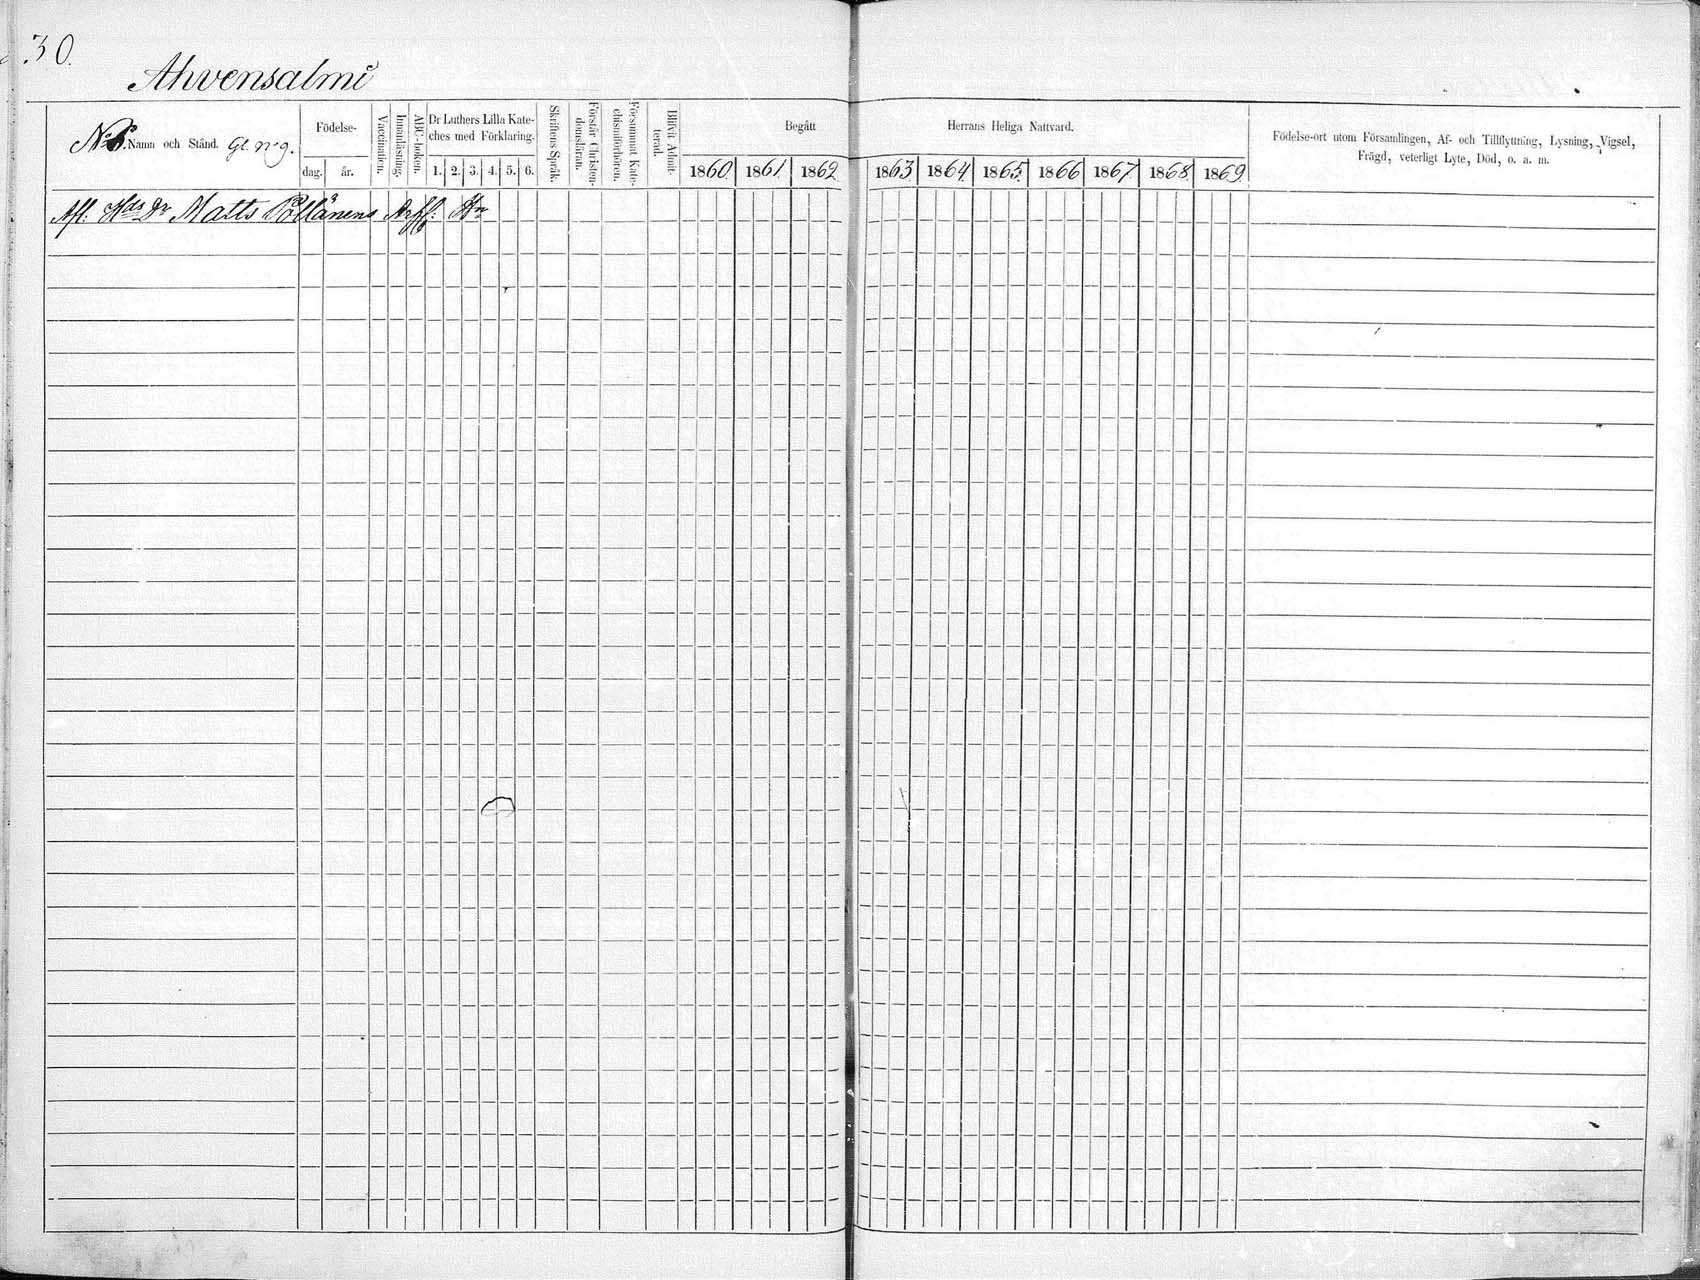 30.
Ahvensalmi
No 8. Namn och Stånd. Gl. no 9.
Födelse-
dag. år.
Vaccination.
Innanläsning.
ABC-boken.
Dr Luthers Lilla Kate-
ches med Förklaring.
1. 2. 3. 4. 5. 6.
Skriftens Språk.
Förstår Christen-
domsläran.
Försummat Kate-
chismiförhören.
Blifvit Admit-
terad.
Begått Herrans Heliga Nattvard.
1860 1861 1862 1863 1864 1865 1866 1867 1868 1869
Födelse-ort utom Församlingen, Af- och Tillflyttning, Lysning, Vigsel,
Frägd, veterligt Lyte, Död, o. a. m.
Afl. Matts Pöllänens